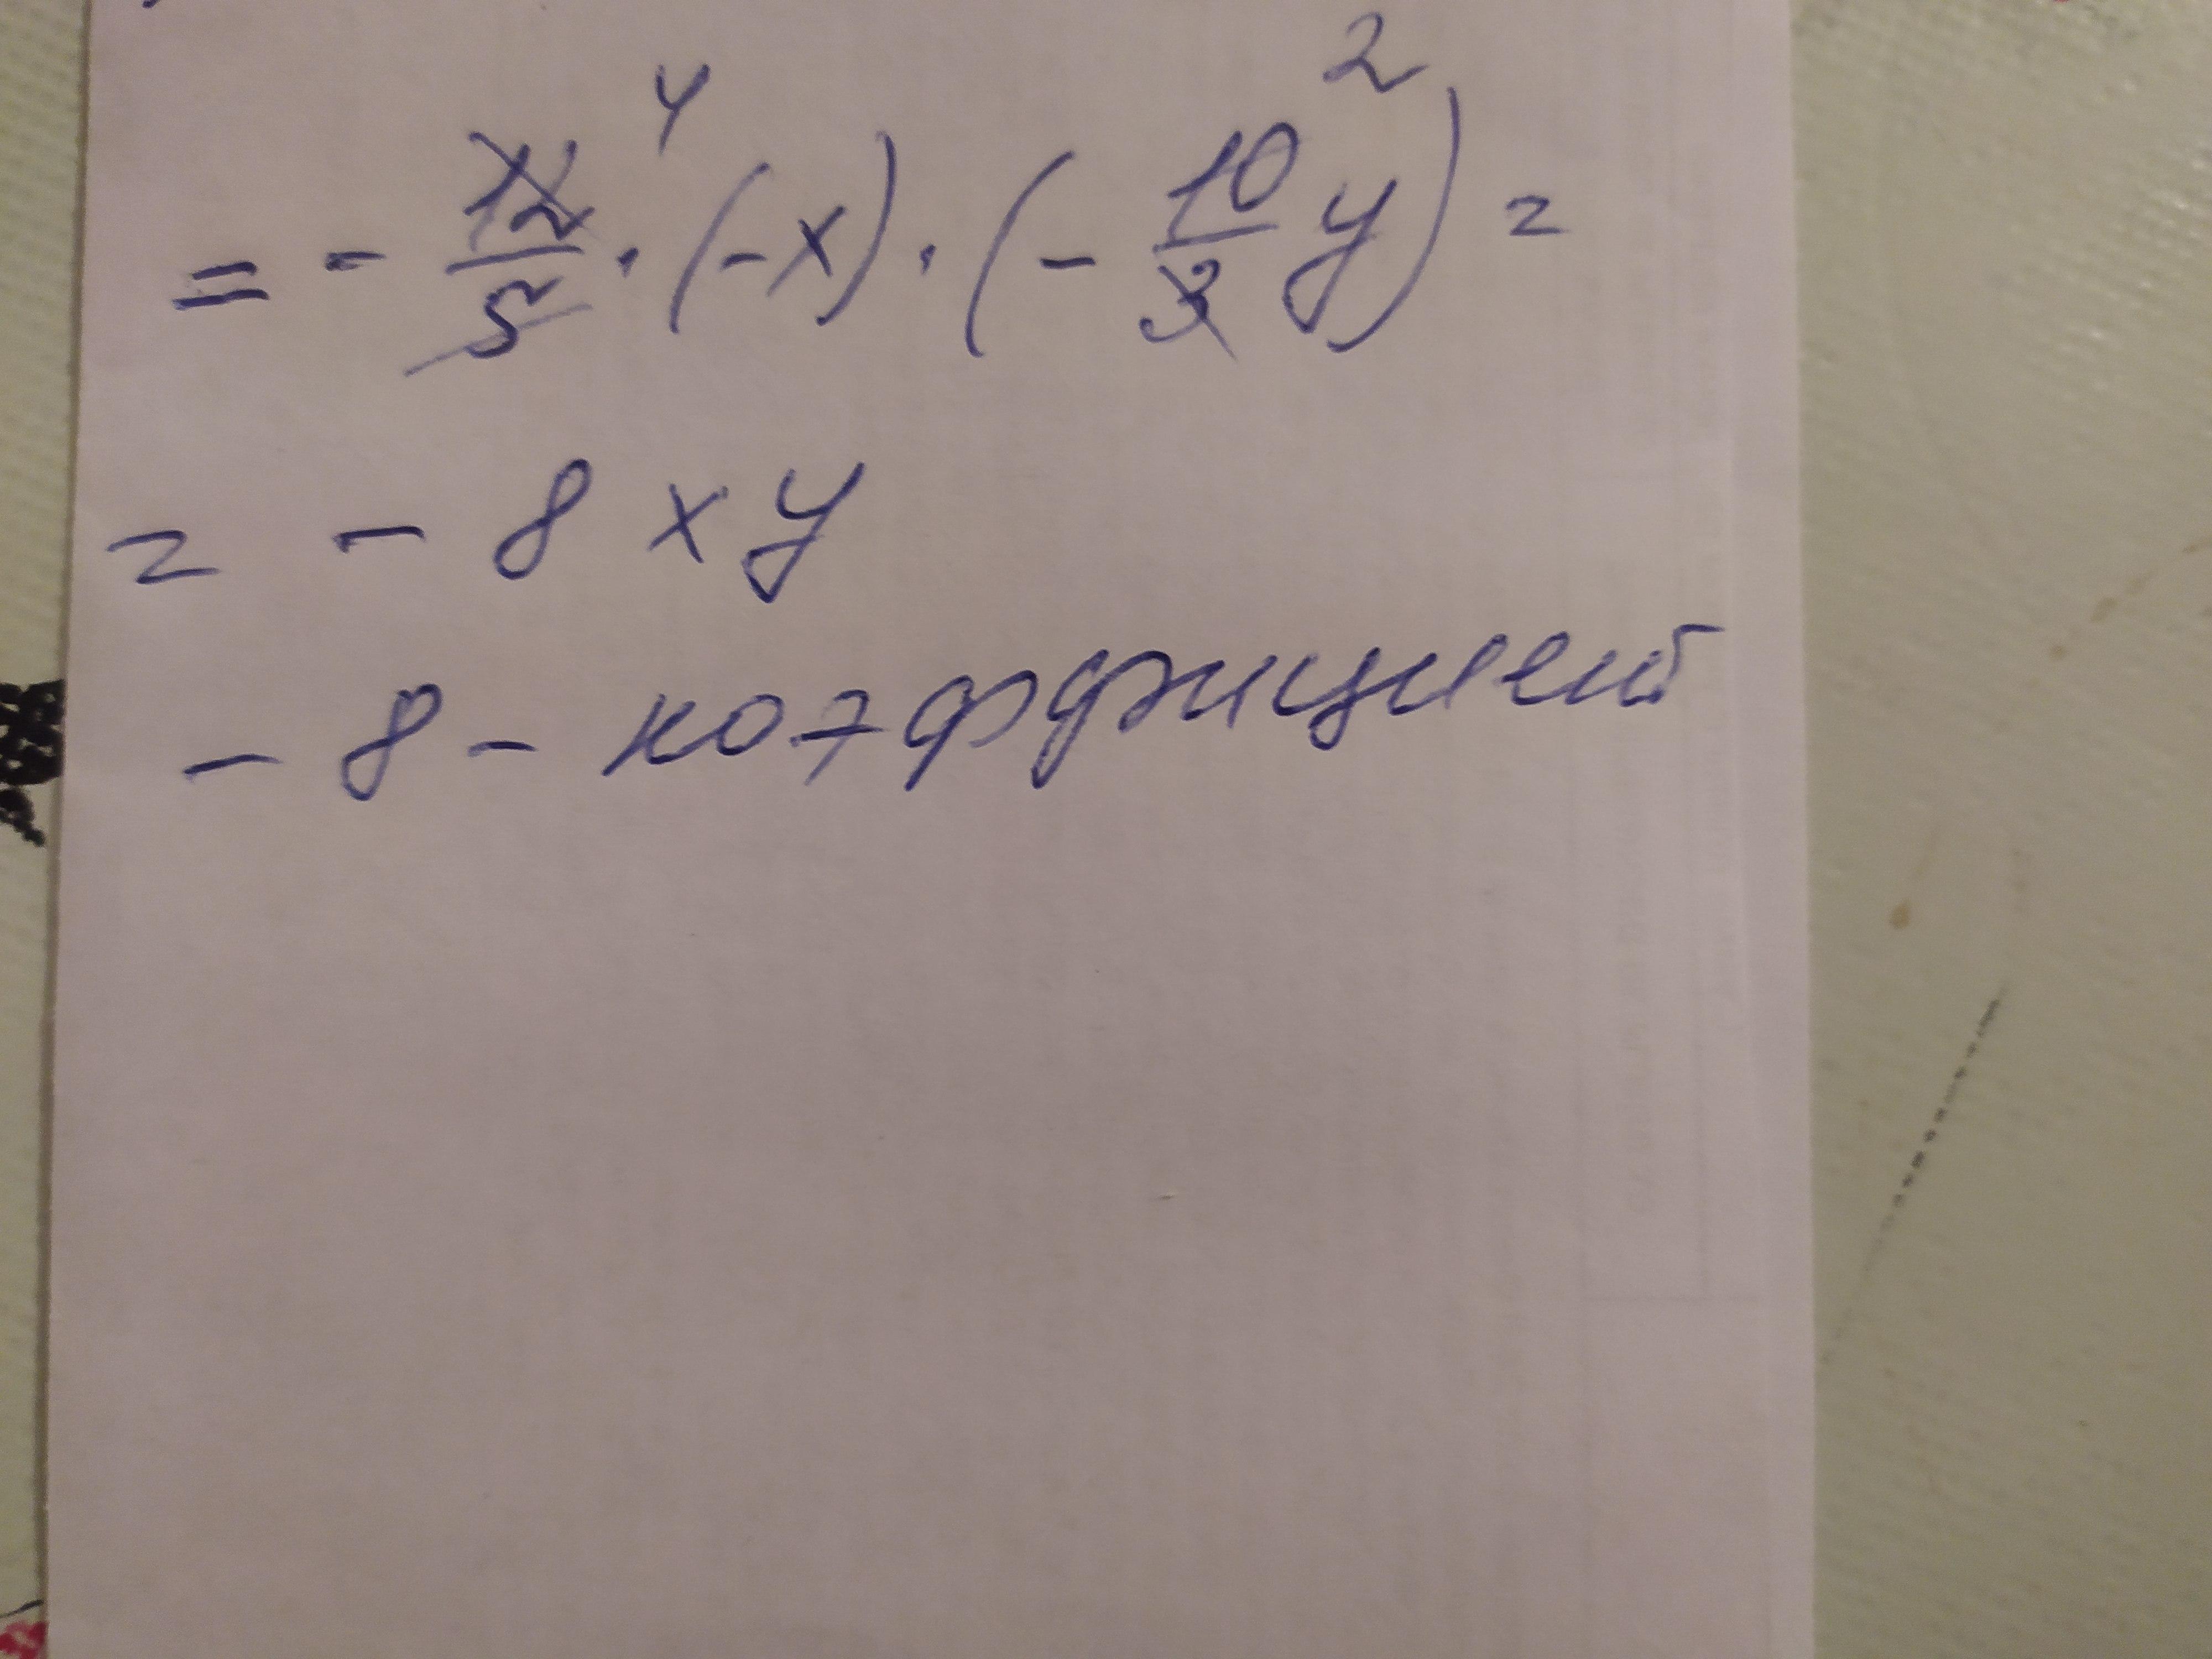 4 2
= - 12/5 · (-x) · (- 10/3 y) =
= - 8 xy
- 8 - коэффициент